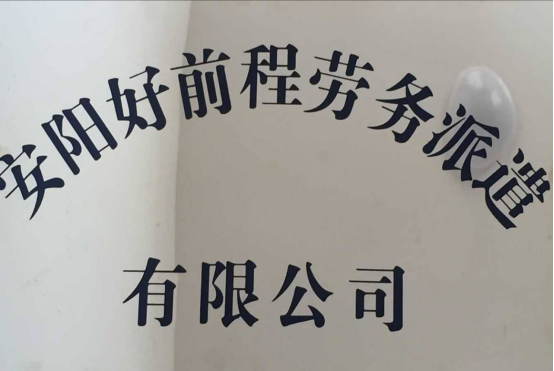 安阳好前程劳务派遣
有限公司